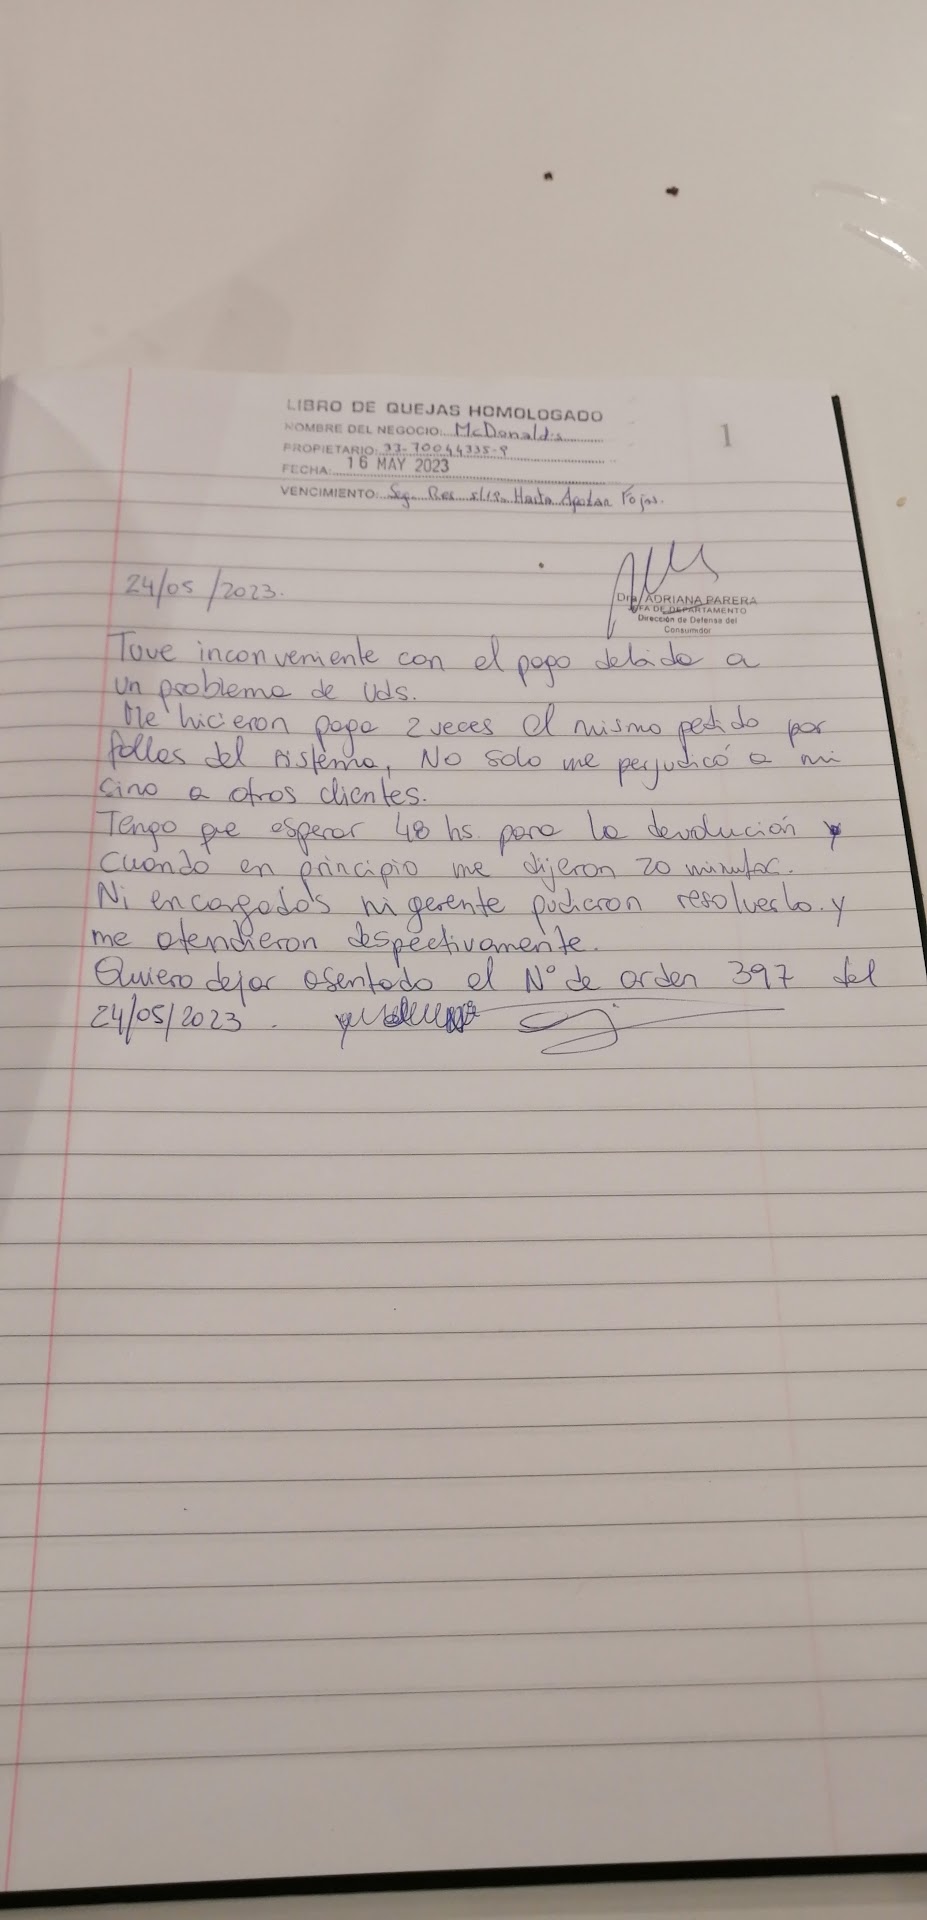 LIBRO DE QUEJAS HOMOLOGADO
NOMBRE DEL NEGOCIO: McDonald's
1
PROPIETARIO: 33-70044335-9
FECHA: 16 MAY 2023
VENCIMIENTO: Seg. Res. Hasta Agotar Fojas.
24/05/2023.
Dra. ADRIANA PARERA
JEFA DE DEPARTAMENTO
Dirección de Defensa del
Consumidor
Tuve inconveniente con el pago debido a
un problema de Uds.
Me hicieron paga 2 veces el mismo pedido por
falles del sistema, No solo me perjudicó a mi
sino a otros clientes.
Tengo que esperar 48 hs. para la devolución y
cuando en principio me dijeron 20 minutos.
Ni encargados ni gerente pudieron resolverlo y
me atendieron despectivamente.
Quiero dejar asentado el N° de orden 397 del
24/05/2023.